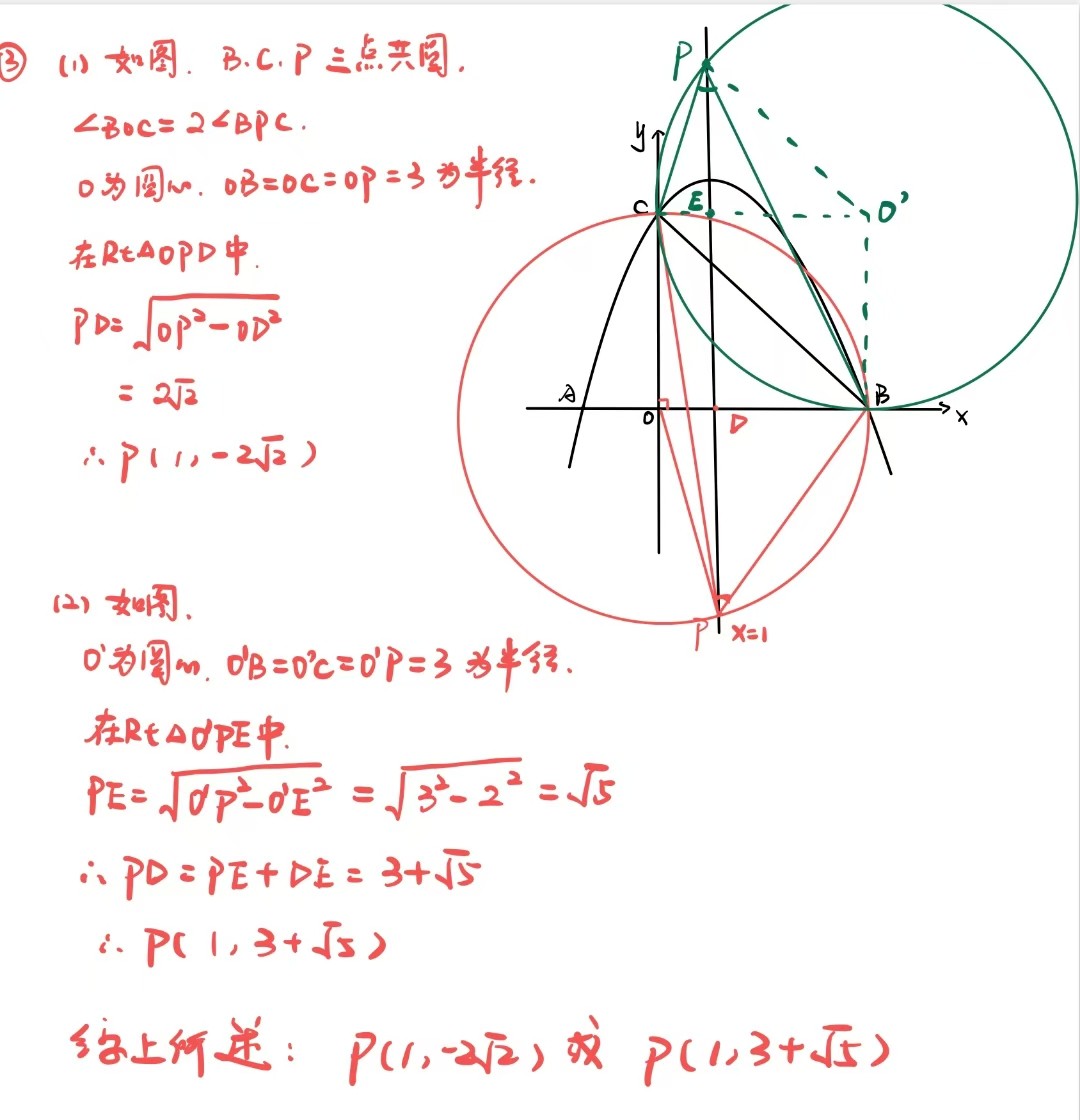 ③ (1) 如图. B.C.P 三点共圆.
∠BOC=2∠BPC.
O为圆心. OB=OC=OP=3 为半径.
在Rt△OPD中.
PD=√(OP²-OD²)
=2√2
∴P(1,-2√2)
(2) 如图.
O'为圆心. O'B=O'C=O'P=3 为半径.
在Rt△O'PE中.
PE=√(O'P²-O'E²)=√(3²-2²)=√5
∴PD=PE+DE=3+√5
∴P(1,3+√5)
综上所述: P(1,-2√2)或 P(1,3+√5)
P
y
C
E
O'
A
O
D
B
x
P
x=1